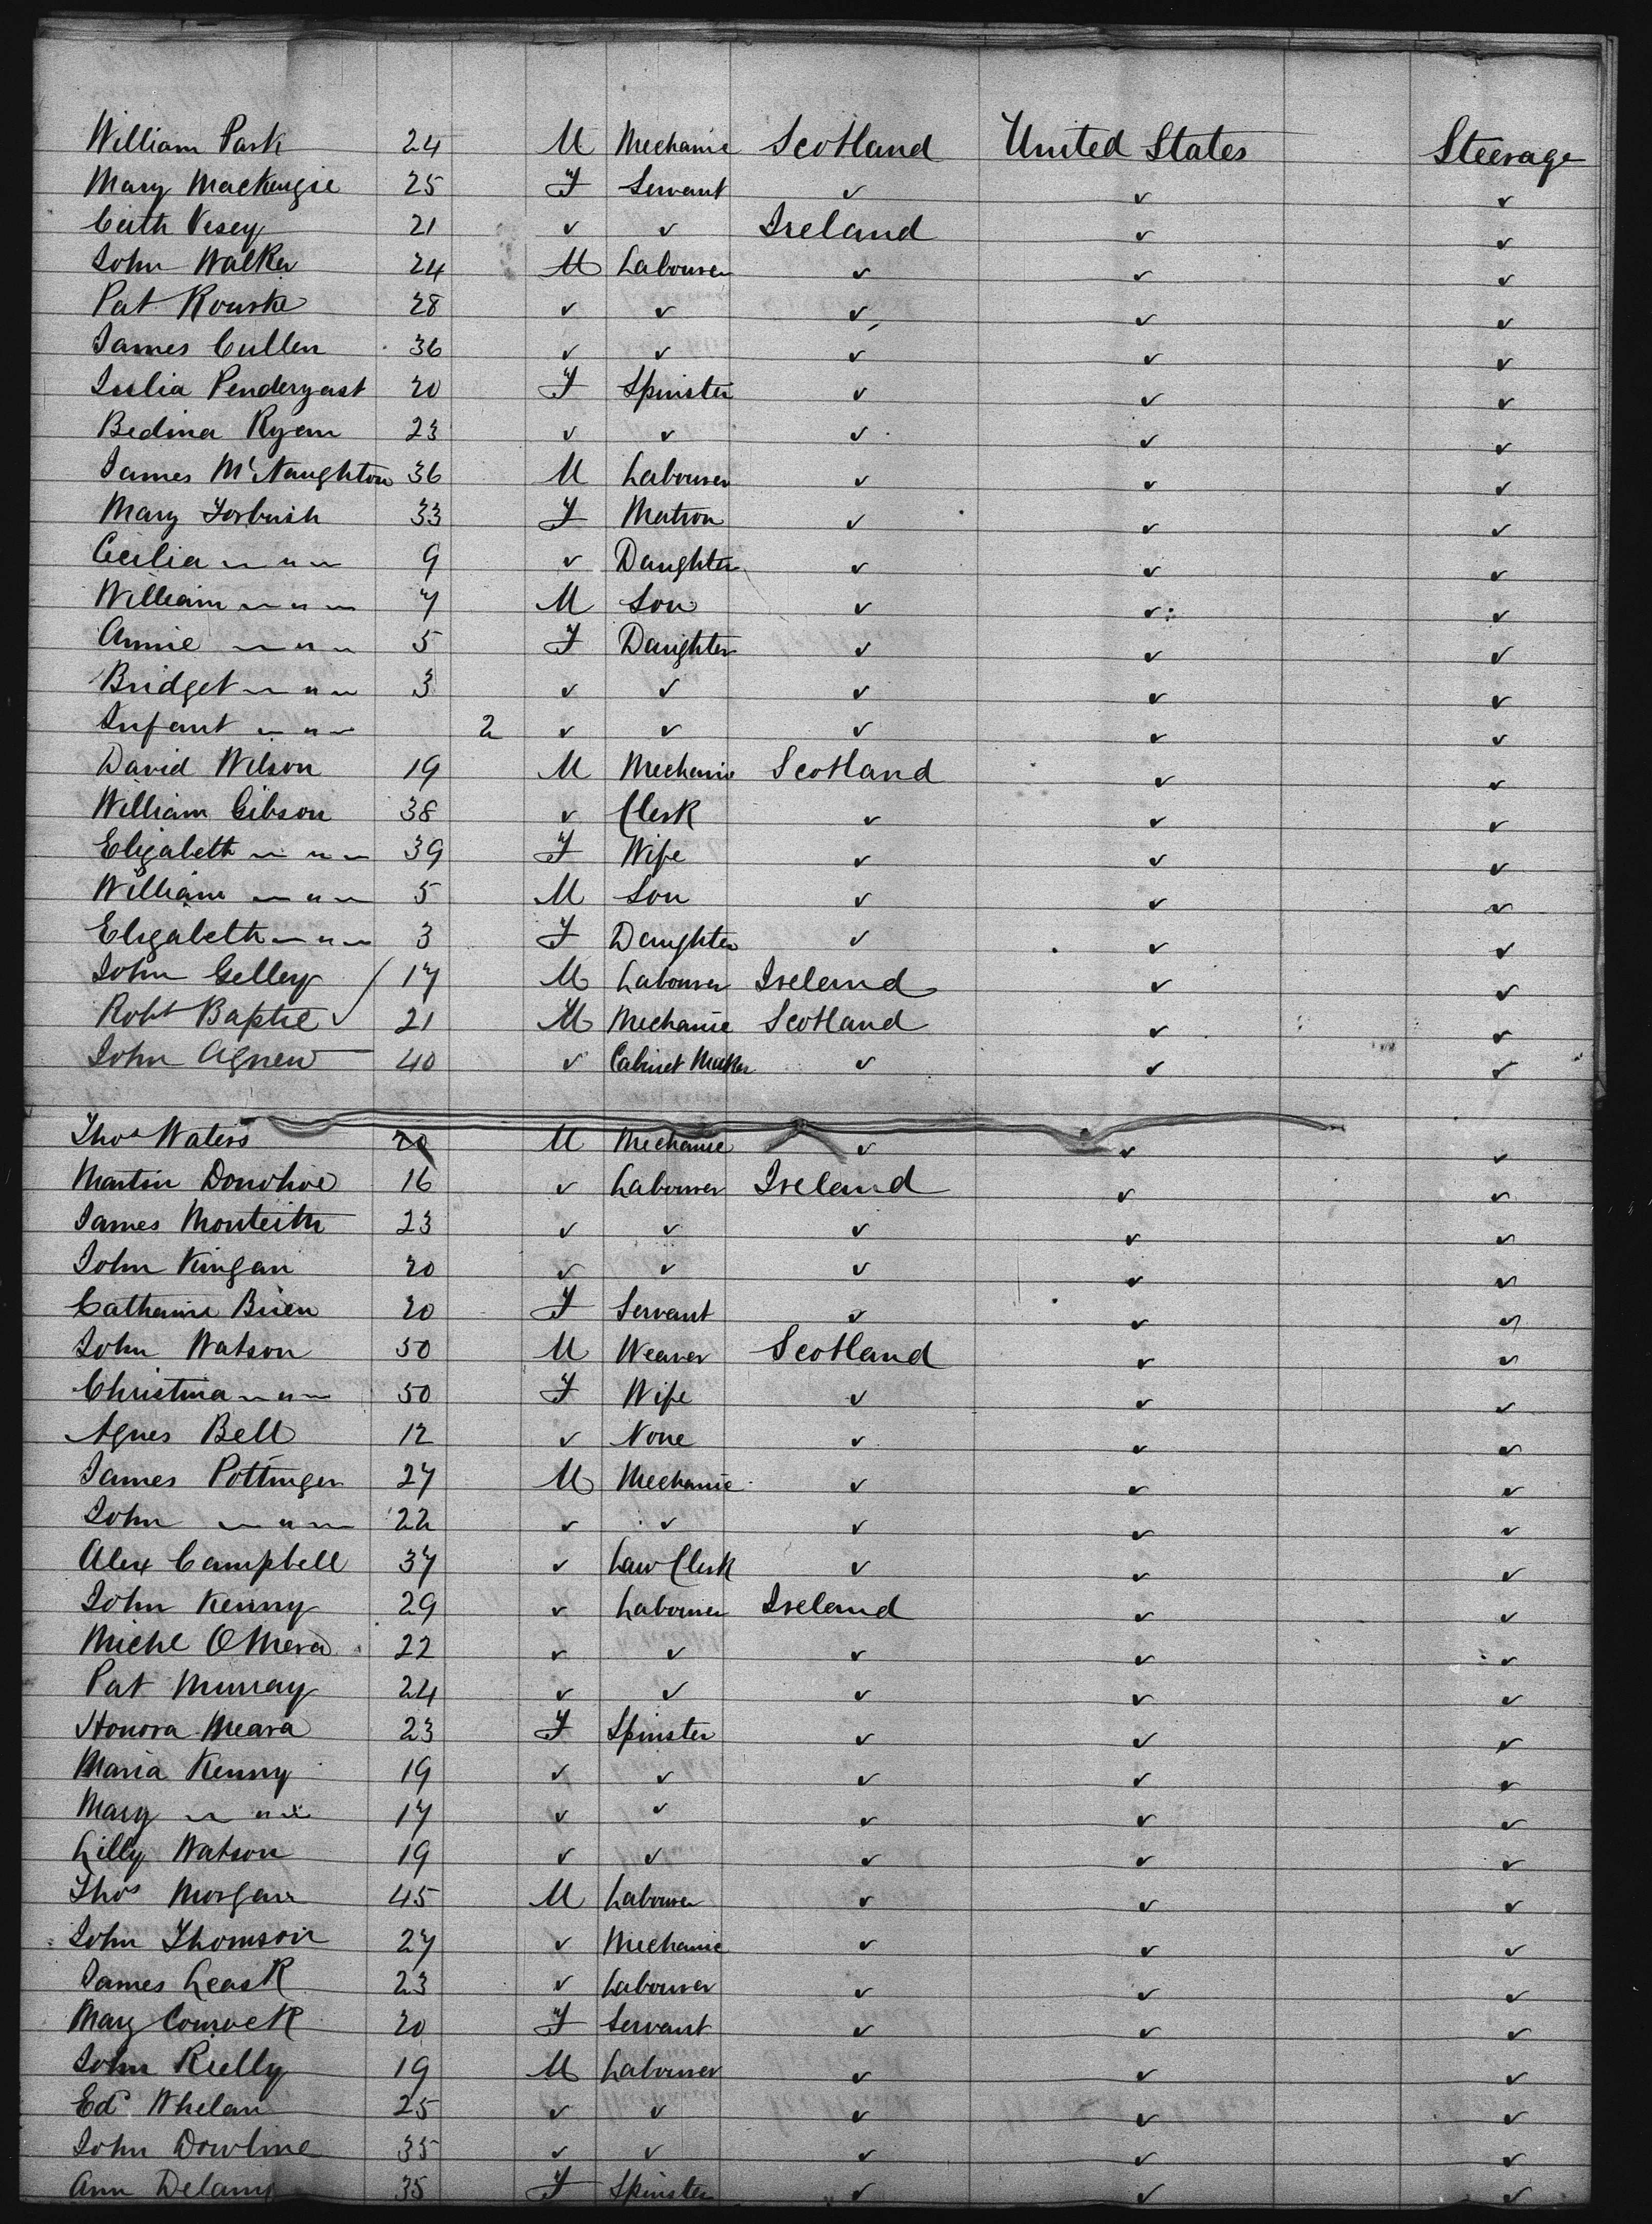 William Park 24 M Mechanic Scotland United States Steerage
Mary Mackenzie 25 F Servant ✓ ✓ ✓
Cath Vesey 21 ✓ ✓ Ireland ✓ ✓
John Walker 24 M Labourer ✓ ✓ ✓
Pat Rourke 28 ✓ ✓ ✓ ✓ ✓
James Cullen 36 ✓ ✓ ✓ ✓ ✓
Julia Pendergast 20 F Spinster ✓ ✓ ✓
Bedina Ryan 23 ✓ ✓ ✓ ✓ ✓
James McNaughton 36 M Labourer ✓ ✓ ✓
Mary Forbush 33 F Matron ✓ ✓ ✓
Cecilia ~ " ~ 9 ✓ Daughter ✓ ✓ ✓
William ~ " ~ 7 M Son ✓ ✓ ✓
Annie ~ " ~ 5 F Daughter ✓ ✓ ✓
Bridget ~ " ~ 3 ✓ ✓ ✓ ✓ ✓
Infant ~ " ~ 2 ✓ ✓ ✓ ✓ ✓
David Wilson 19 M Mechanic Scotland ✓ ✓
William Gibson 38 ✓ Clerk ✓ ✓ ✓
Elizabeth ~ " ~ 39 F Wife ✓ ✓ ✓
William ~ " ~ 5 M Son ✓ ✓ ✓
Elizabeth ~ " ~ 3 F Daughter ✓ ✓ ✓
John Gelley 17 M Labourer Ireland ✓ ✓
Robt Baptie 21 M Mechanic Scotland ✓ ✓
John Agnew 40 ✓ Cabinet Maker ✓ ✓ ✓
Thos Waters 20 M Mechanic ✓ ✓ ✓
Martin Donohoe 16 ✓ Labourer Ireland ✓ ✓
James Monteith 23 ✓ ✓ ✓ ✓ ✓
John Kingan 20 ✓ ✓ ✓ ✓ ✓
Catherine Brien 20 F Servant ✓ ✓ ✓
John Watson 50 M Weaver Scotland ✓ ✓
Christina ~ " ~ 50 F Wife ✓ ✓ ✓
Agnes Bell 12 ✓ None ✓ ✓ ✓
James Pottinger 27 M Mechanic ✓ ✓ ✓
John ~ " ~ 22 ✓ ✓ ✓ ✓ ✓
Alex Campbell 37 ✓ Law Clerk ✓ ✓ ✓
John Kenny 29 ✓ Labourer Ireland ✓ ✓
Michl OMera 22 ✓ ✓ ✓ ✓ ✓
Pat Murray 24 ✓ ✓ ✓ ✓ ✓
Honora Meara 23 F Spinster ✓ ✓ ✓
Maria Kenny 19 ✓ ✓ ✓ ✓ ✓
Mary ~ " ~ 17 ✓ ✓ ✓ ✓ ✓
Lilly Watson 19 ✓ ✓ ✓ ✓ ✓
Thos Morgan 45 M Labourer ✓ ✓ ✓
John Thomson 27 ✓ Mechanic ✓ ✓ ✓
James Leask 23 ✓ Labourer ✓ ✓ ✓
Mary 20 F Servant ✓ ✓ ✓
John Rielly 19 M Labourer ✓ ✓ ✓
Ed Whelan 25 ✓ ✓ ✓ ✓ ✓
John Dowline 35 ✓ ✓ ✓ ✓ ✓
Ann 35 F Spinster ✓ ✓ ✓